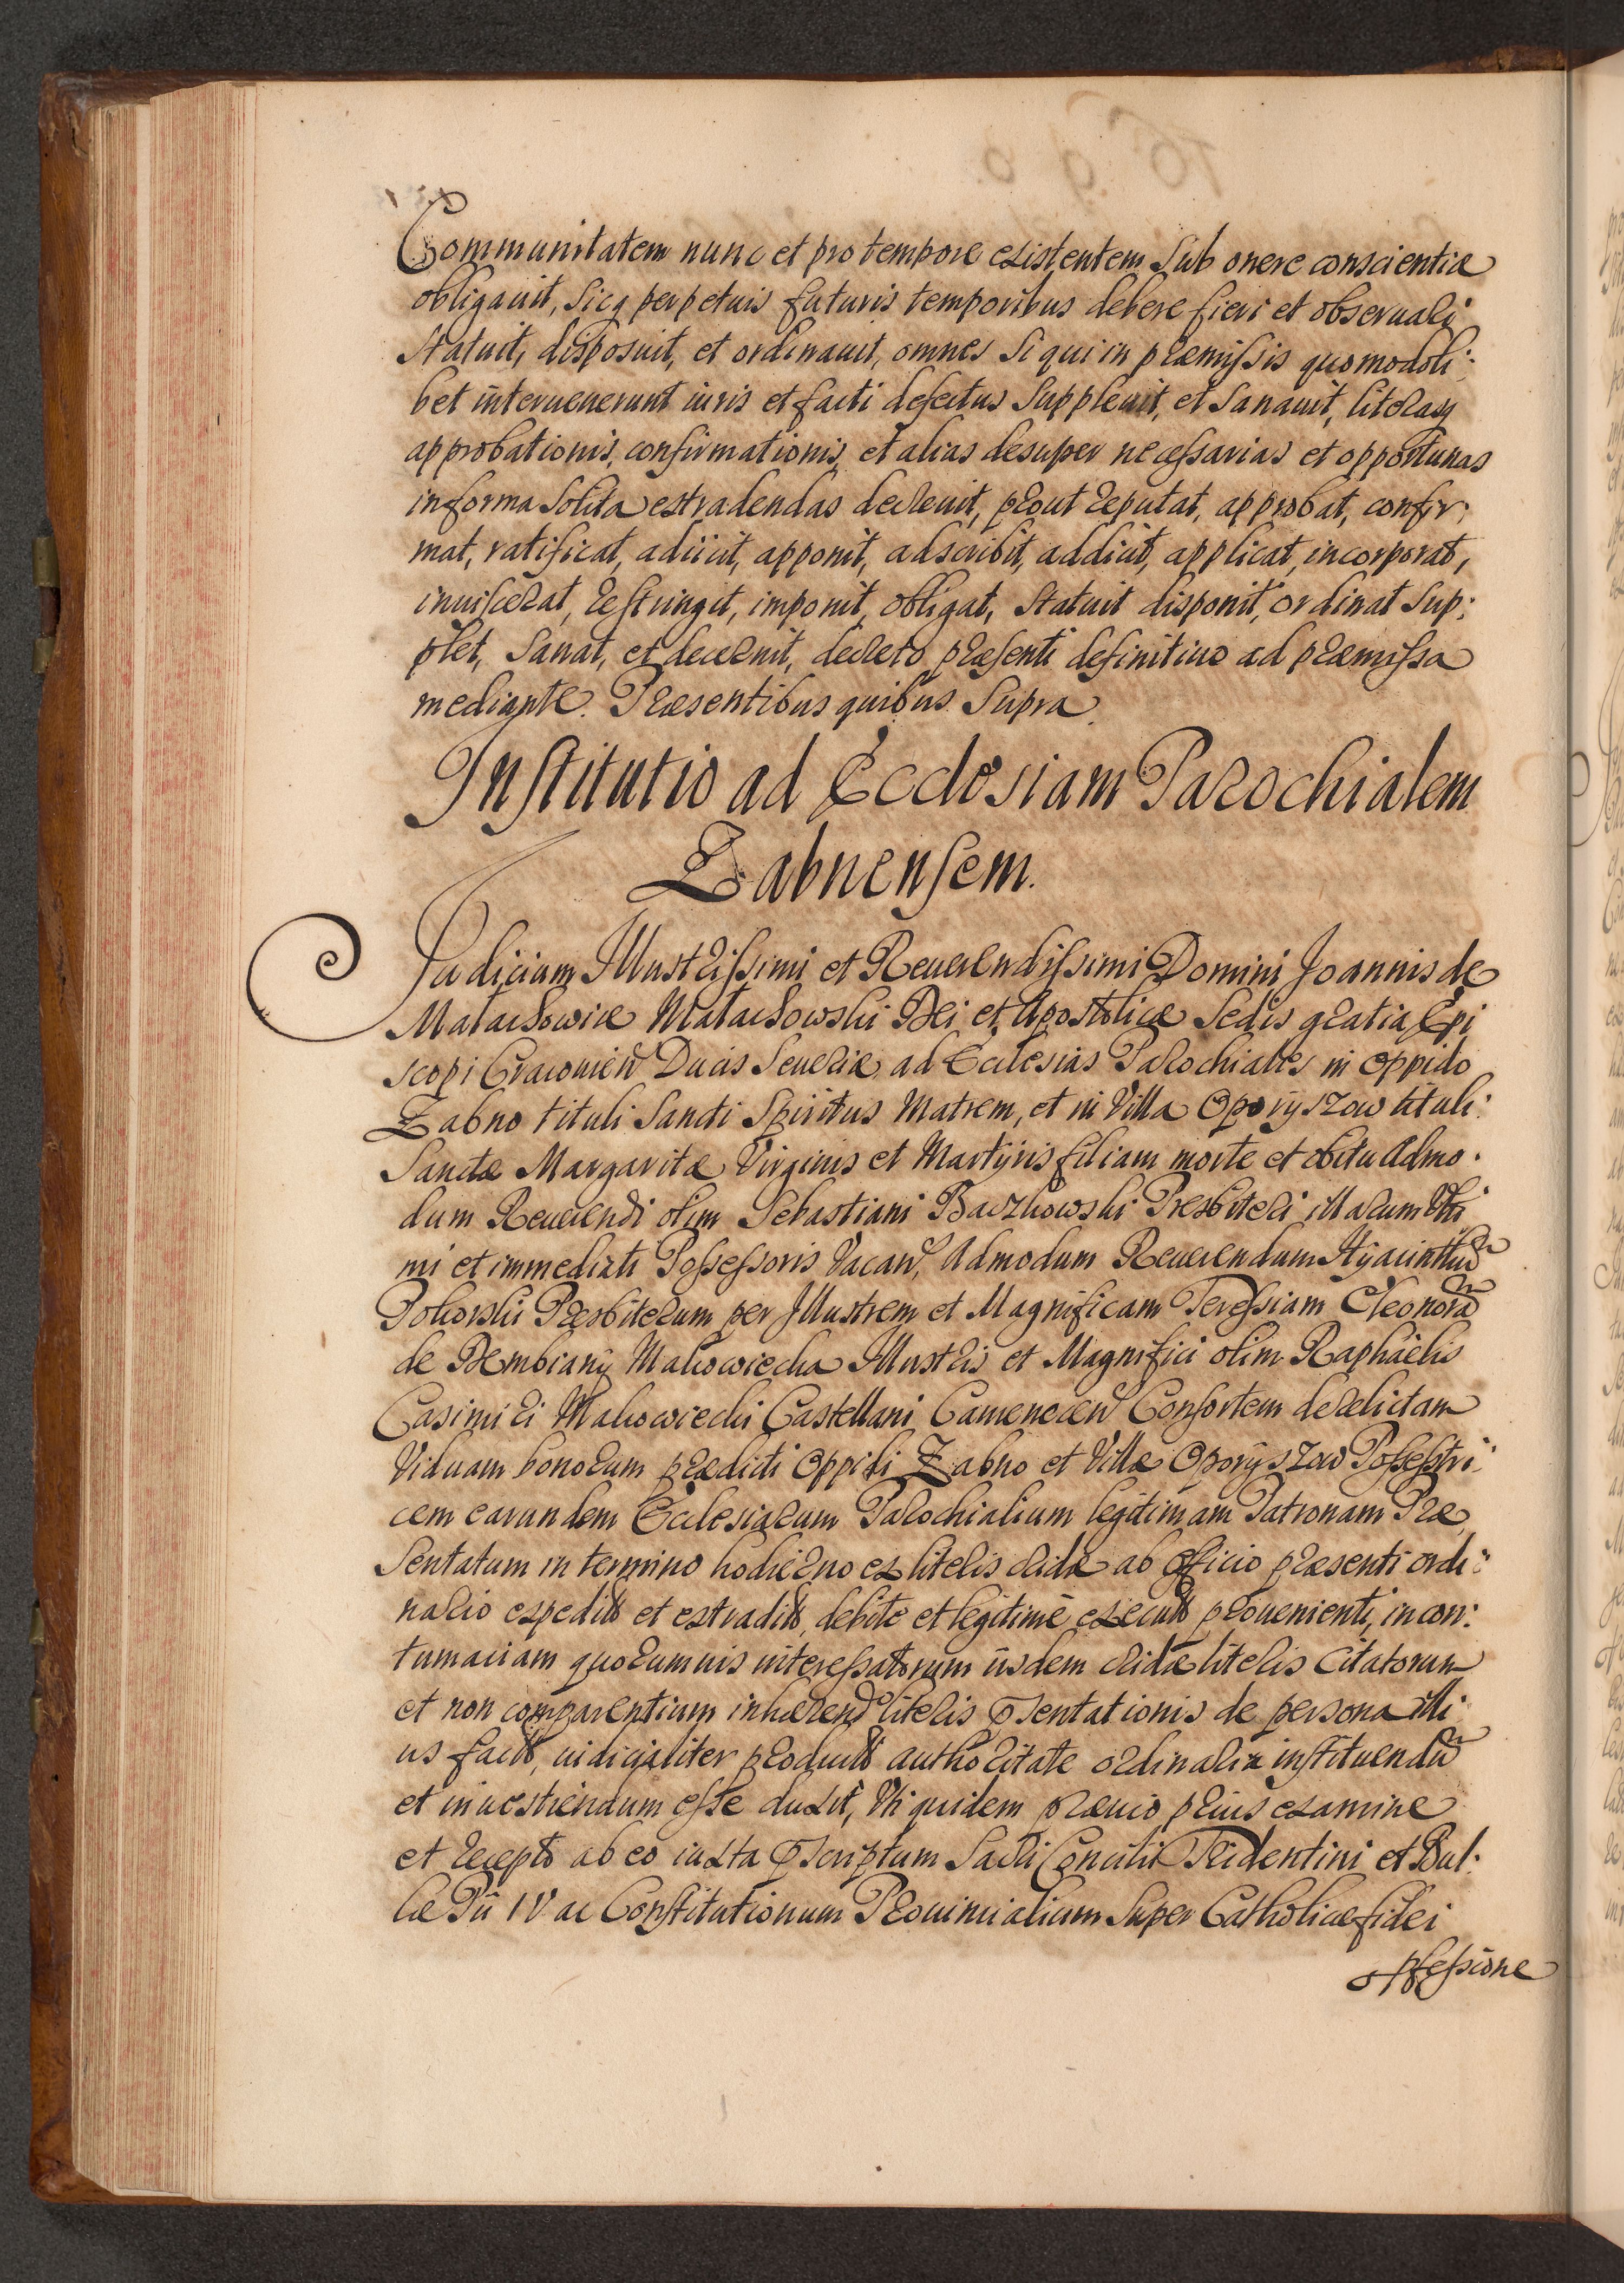 Communitatem nunc et pro tempore existentem Sub onere conscientiæ
obligauit, Sicq perpetuis futuris temporibus debere fieri et obseruari
Statuit, disposuit, et ordinauit, omnes Si qui in præmissis quomodoli:
bet interuenerunt iuris et facti defectus Suppleuit, et Sanauit, literasq
approbationis, confirmationis, et alias desuper necessarias et opportunas
in forma Solita extradendas decreuit, prout reputat, approbat, confir:
mat, ratificat, adiicit, apponit, adscribit, addicit, applicat, incorporat,
inuiscerat, restringit, imponit, obligat, Statuit disponit, ordinat Sup:
plet, Sanat, et decernit, decreto præsenti definitiuo ad præmissa
mediante. Præsentibus quibus Supra.
Institutio ad Ecclesiam Parochialem
Zabnensem.
Judicium Illustrissimi et Reuerendissimi Domini Joannis de
Małachowice Małachowski Dei et Apostolicæ Sedis gratia Epi
scopi Cracouien Ducis Seueriæ ad Ecclesias Parochiales in Oppido
Zabno tituli Sancti Spiritus Matrem, et in Villa Oporyszow tituli:
Sanctæ Margaritæ Virginis et Martyris filiam morte et obitu Admo:
dum Reuerendi olim Sebastiani Baczkowski Presbiteri illarum Vlti:
mi et immediati Possessoris Vacan, Admodum Reuerendum Hyacinthum
Pokorski Presbiterum per Illustrem et Magnificam Teressiam Eleonoram
de Dembiany Makowiecka Illustris et Magnifici olim Raphaëlis
Casimiri Makowiecki Castellani Camenecen Consortem derelictam
Viduam bonorum prædicti Oppidi Zabno et Villæ Oporyszow Possestri:
cem earundem Ecclesiarum Parochialium legitimam Patronam Præ
Sentatum in termino hodierno ex literis cridæ ab officio præsenti ordi:
nario expeditis et extraditis, debite et legitimè executis prouenienti, in con:
tumaciam quorumuis interessatorum iisdem cridæ literis Citatorum
et non comparentium inhærend literis psentationis de persona illi
us factis, iudicialiter productis authoritate ordinaria instituendum
et inuestiendum esse duxit, Vti quidem præuio prius examine
et recepto ab eo iuxta pscriptum Sacri Concilii Tridentini et Bul:
læ Pii IV ac Constitutionum Prouincialium Super Catholicæ fidei
pfessione